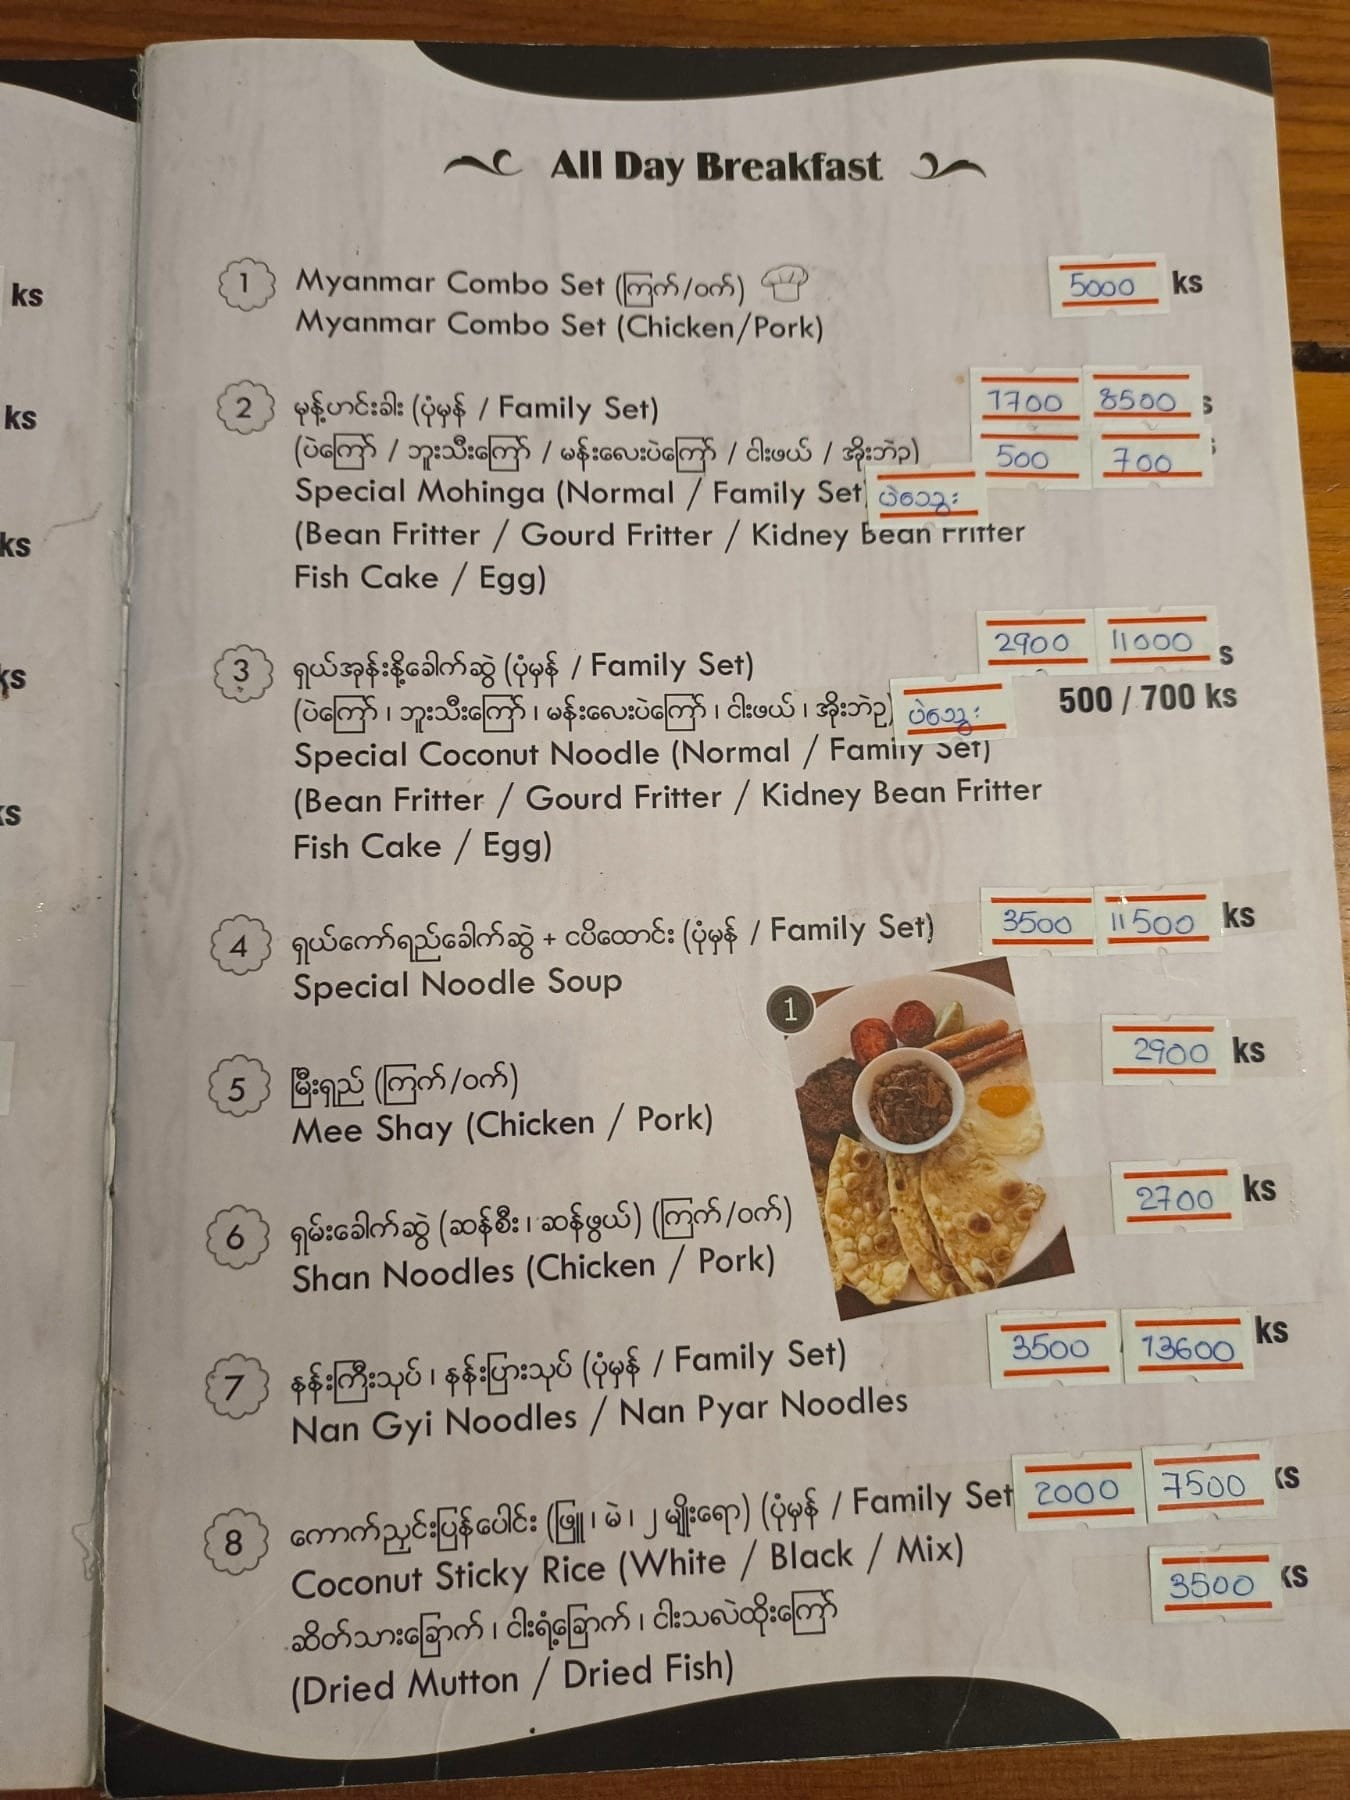 All Day Breakfast
ks
1 Myanmar Combo Set (ကြက်/ဝက်) 5000 ks
Myanmar Combo Set (Chicken/Pork)
ks
2 မုန့်ဟင်းခါး (ပုံမှန် / Family Set) 1700 8500 s
(ပဲကြော် / ဘူးသီးကြော် / မန်းလေးပဲကြော် / ငါးဖယ် / အိုးဘဲဥ) 500 700
Special Mohinga (Normal / Family Set) ပဲသွေး
(Bean Fritter / Gourd Fritter / Kidney Bean Fritter
Fish Cake / Egg)
ks
3 ရှယ်အုန်းနို့ခေါက်ဆွဲ (ပုံမှန် / Family Set) 2900 11000 s
(ပဲကြော် ၊ ဘူးသီးကြော် ၊ မန်းလေးပဲကြော် ၊ ငါးဖယ် ၊ အိုးဘဲဥ) ပဲသွေး 500 / 700 ks
Special Coconut Noodle (Normal / Family Set)
(Bean Fritter / Gourd Fritter / Kidney Bean Fritter
Fish Cake / Egg)
ks
ks
4 ရှယ်ကော်ရည်ခေါက်ဆွဲ + ငပိထောင်း (ပုံမှန် / Family Set) 3500 11500 ks
Special Noodle Soup
1
5 မြီးရှည် (ကြက်/ဝက်) 2900 ks
Mee Shay (Chicken / Pork)
6 ရှမ်းခေါက်ဆွဲ (ဆန်စီး ၊ ဆန်ဖွယ်) (ကြက်/ဝက်) 2700 ks
Shan Noodles (Chicken / Pork)
7 နန်းကြီးသုပ် ၊ နန်းပြားသုပ် (ပုံမှန် / Family Set) 3500 13600 ks
Nan Gyi Noodles / Nan Pyar Noodles
8 ကောက်ညှင်းပြန်ပေါင်း (ဖြူ ၊ မဲ ၊ ၂ မျိုးရော) (ပုံမှန် / Family Set 2000 7500 ks
Coconut Sticky Rice (White / Black / Mix)
ဆိတ်သားခြောက် ၊ ငါးရံ့ခြောက် ၊ ငါးသလဲထိုးကြော် 3500 ks
(Dried Mutton / Dried Fish)